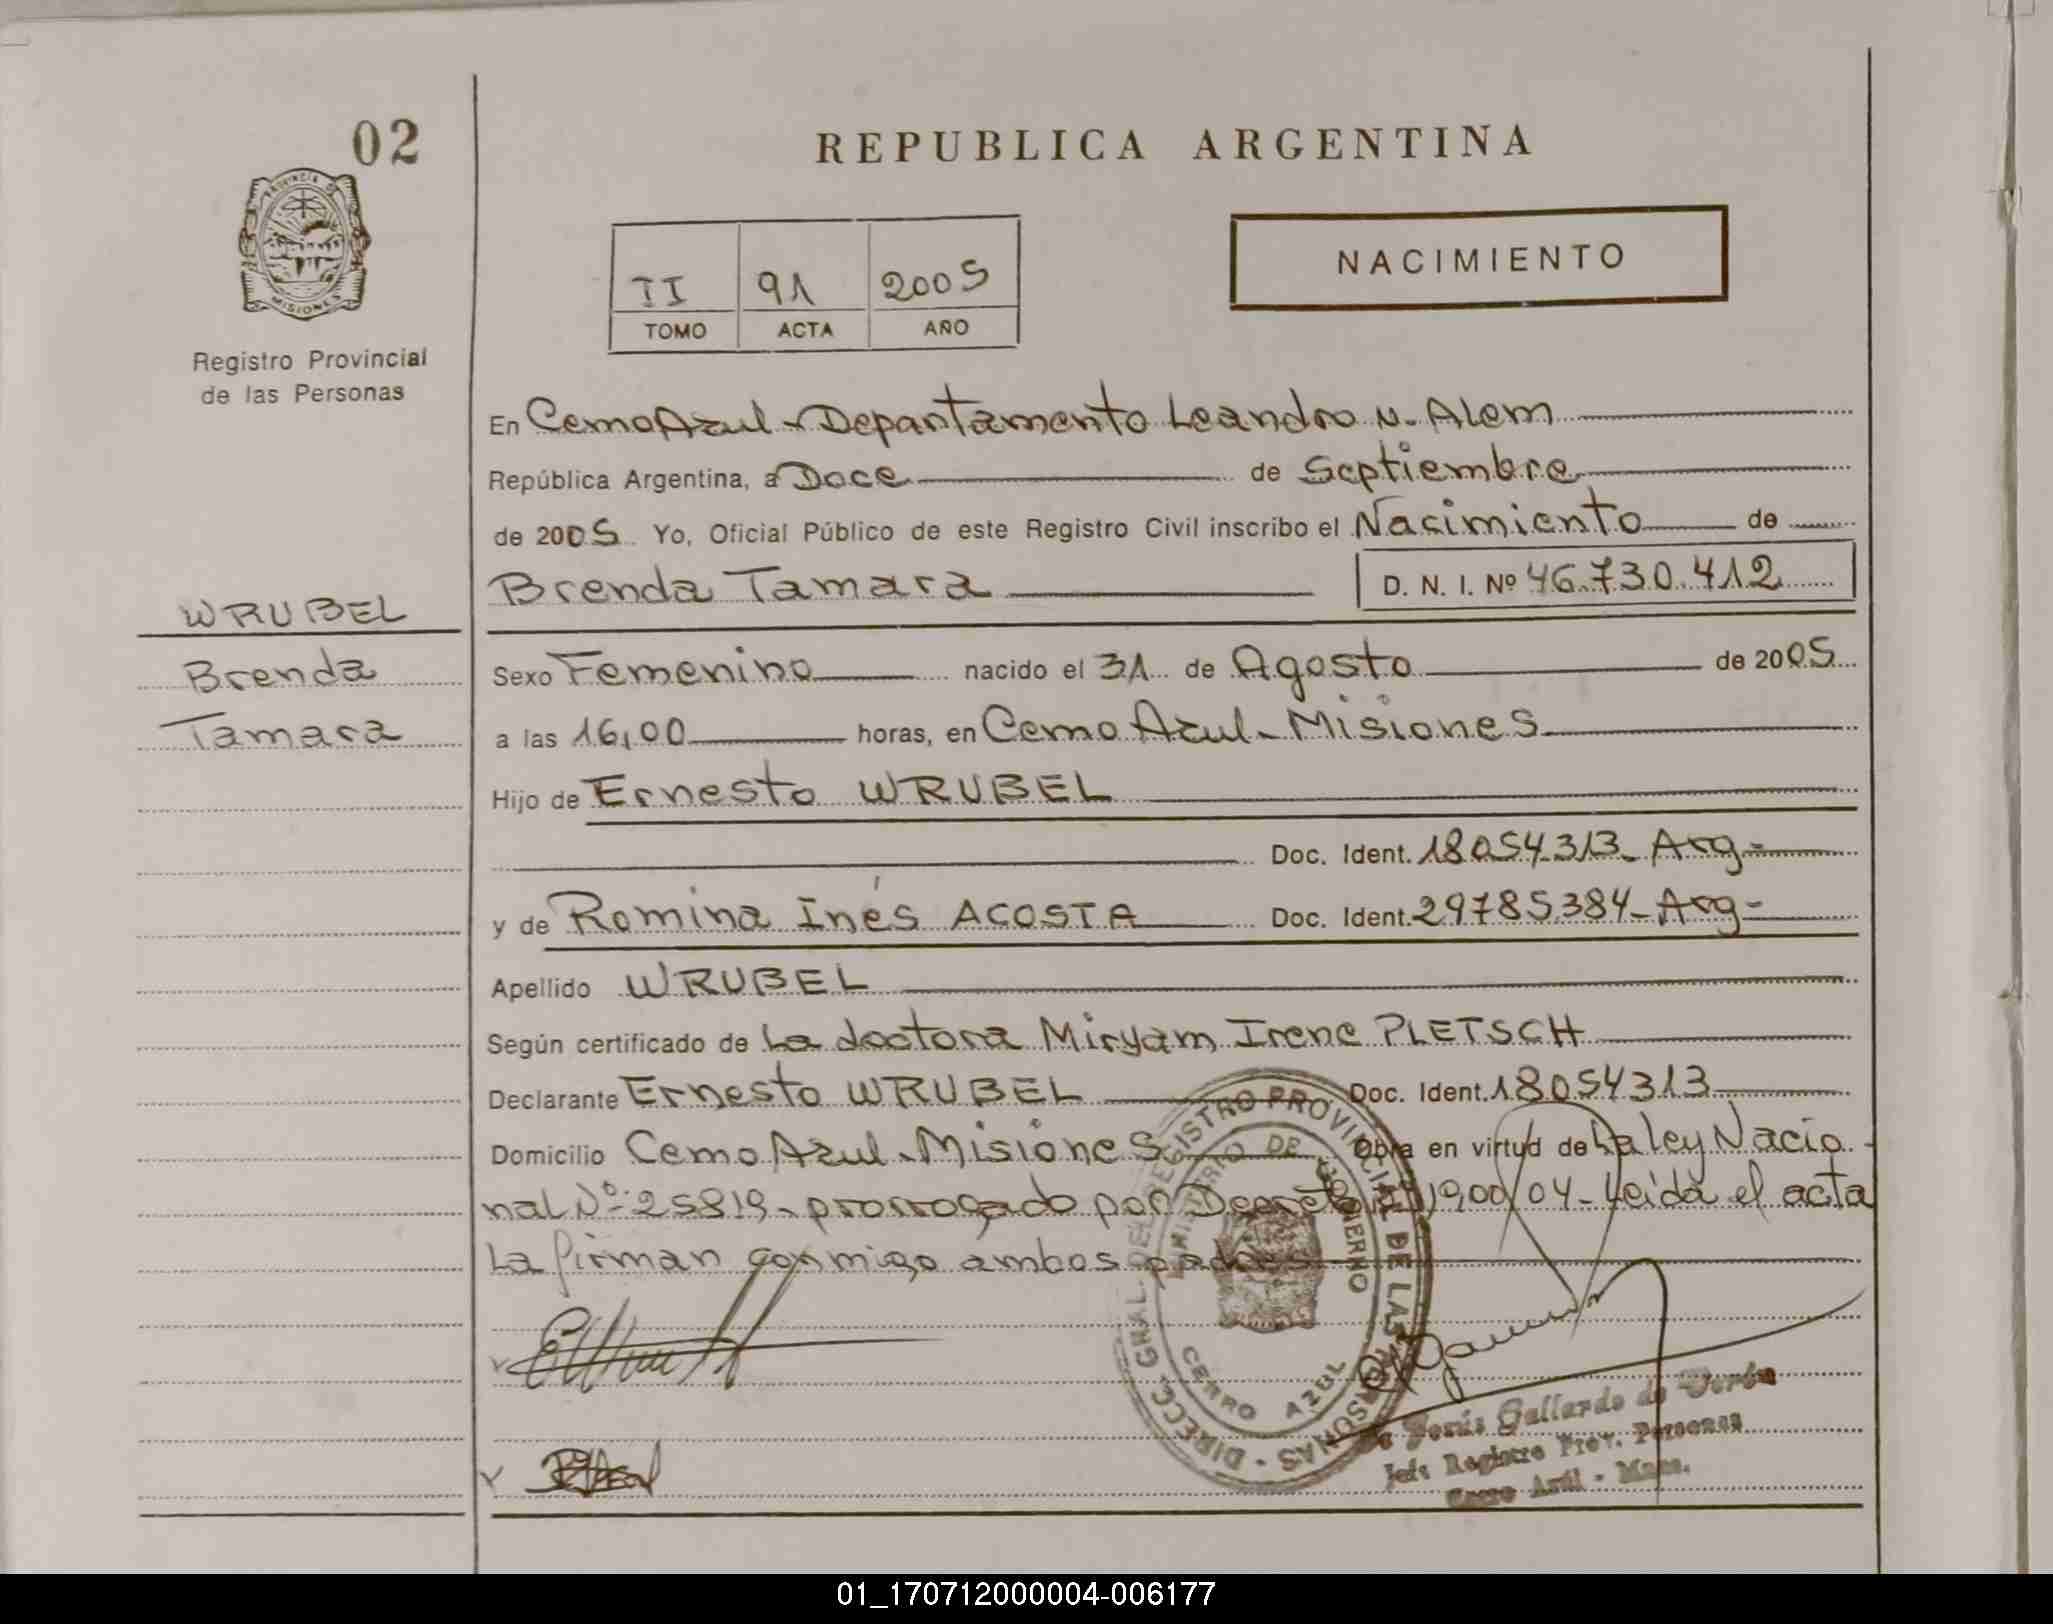 02
PROVINCIA DE
MISIONES
Registro Provincial
de las Personas
WRUBEL
Brenda
Tamara
REPUBLICA ARGENTINA
II 91 2005
TOMO ACTA AÑO
NACIMIENTO
En Cerro Azul - Departamento Leandro N. Alem
República Argentina, a Doce de Septiembre
de 2005 Yo, Oficial Público de este Registro Civil inscribo el Nacimiento de
Brenda Tamara D. N. I. Nº 46.730.412
Sexo Femenino nacido el 31 de Agosto de 2005
a las 16,00 horas, en Cerro Azul - Misiones
Hijo de Ernesto WRUBEL
Doc. Ident. 18054313 - Arg -
y de Romina Inés ACOSTA Doc. Ident. 29785384 - Arg -
Apellido WRUBEL
Según certificado de La doctora Miryam Irene PLETSCH
Declarante Ernesto WRUBEL Doc. Ident. 18054313
Domicilio Cerro Azul - Misiones Obra en virtud de La ley Nacio -
nal Nº 25819 - prorrogado por Decreto 1900/04 - Leida el acta
La firman conmigo ambos padres
DIRECC. GRAL. DEL REGISTRO PROVINCIAL DE LAS PERSONAS
MINISTERIO DE GOBIERNO
CERRO AZUL
Jesús Gallardo de
Jefe Registro Prov. Personas
Cerro Azul - Mnes.
01_170712000004-006177